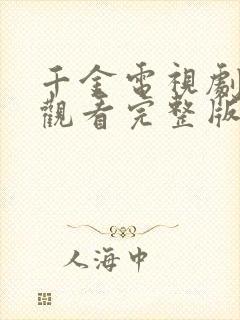 千金電視劇
觀看完整版
人海中